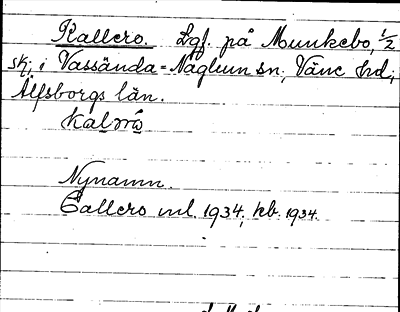 Kallero. Lgf. på Munkebo, 1/2
sk, i Vassända=Naglum sn, Väne hd,
Älfsborgs län.
Nynamn.
Callero ml. 1934, kb. 1934.